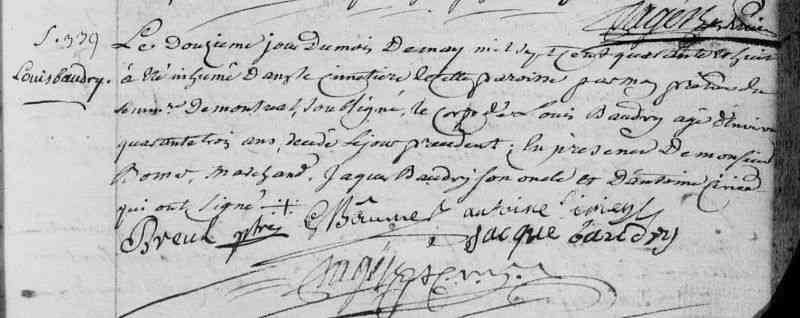 S. 339
Louis baudry.
Le douzieme jour du mois de may mil sept cent quarante et huit
a été inhumé dans le cimetiere de cette paroisse par moy prêtre du
semin.re de montreal, soussigné, le corps de Louis Baudry agé d'environ
quarante trois ans, decedé le jour precedent; En presence de monsieur
marchand, Jaque Baudry son oncle et d'antoine
qui ont signé
Breul ptre antoine
Jacque baudry